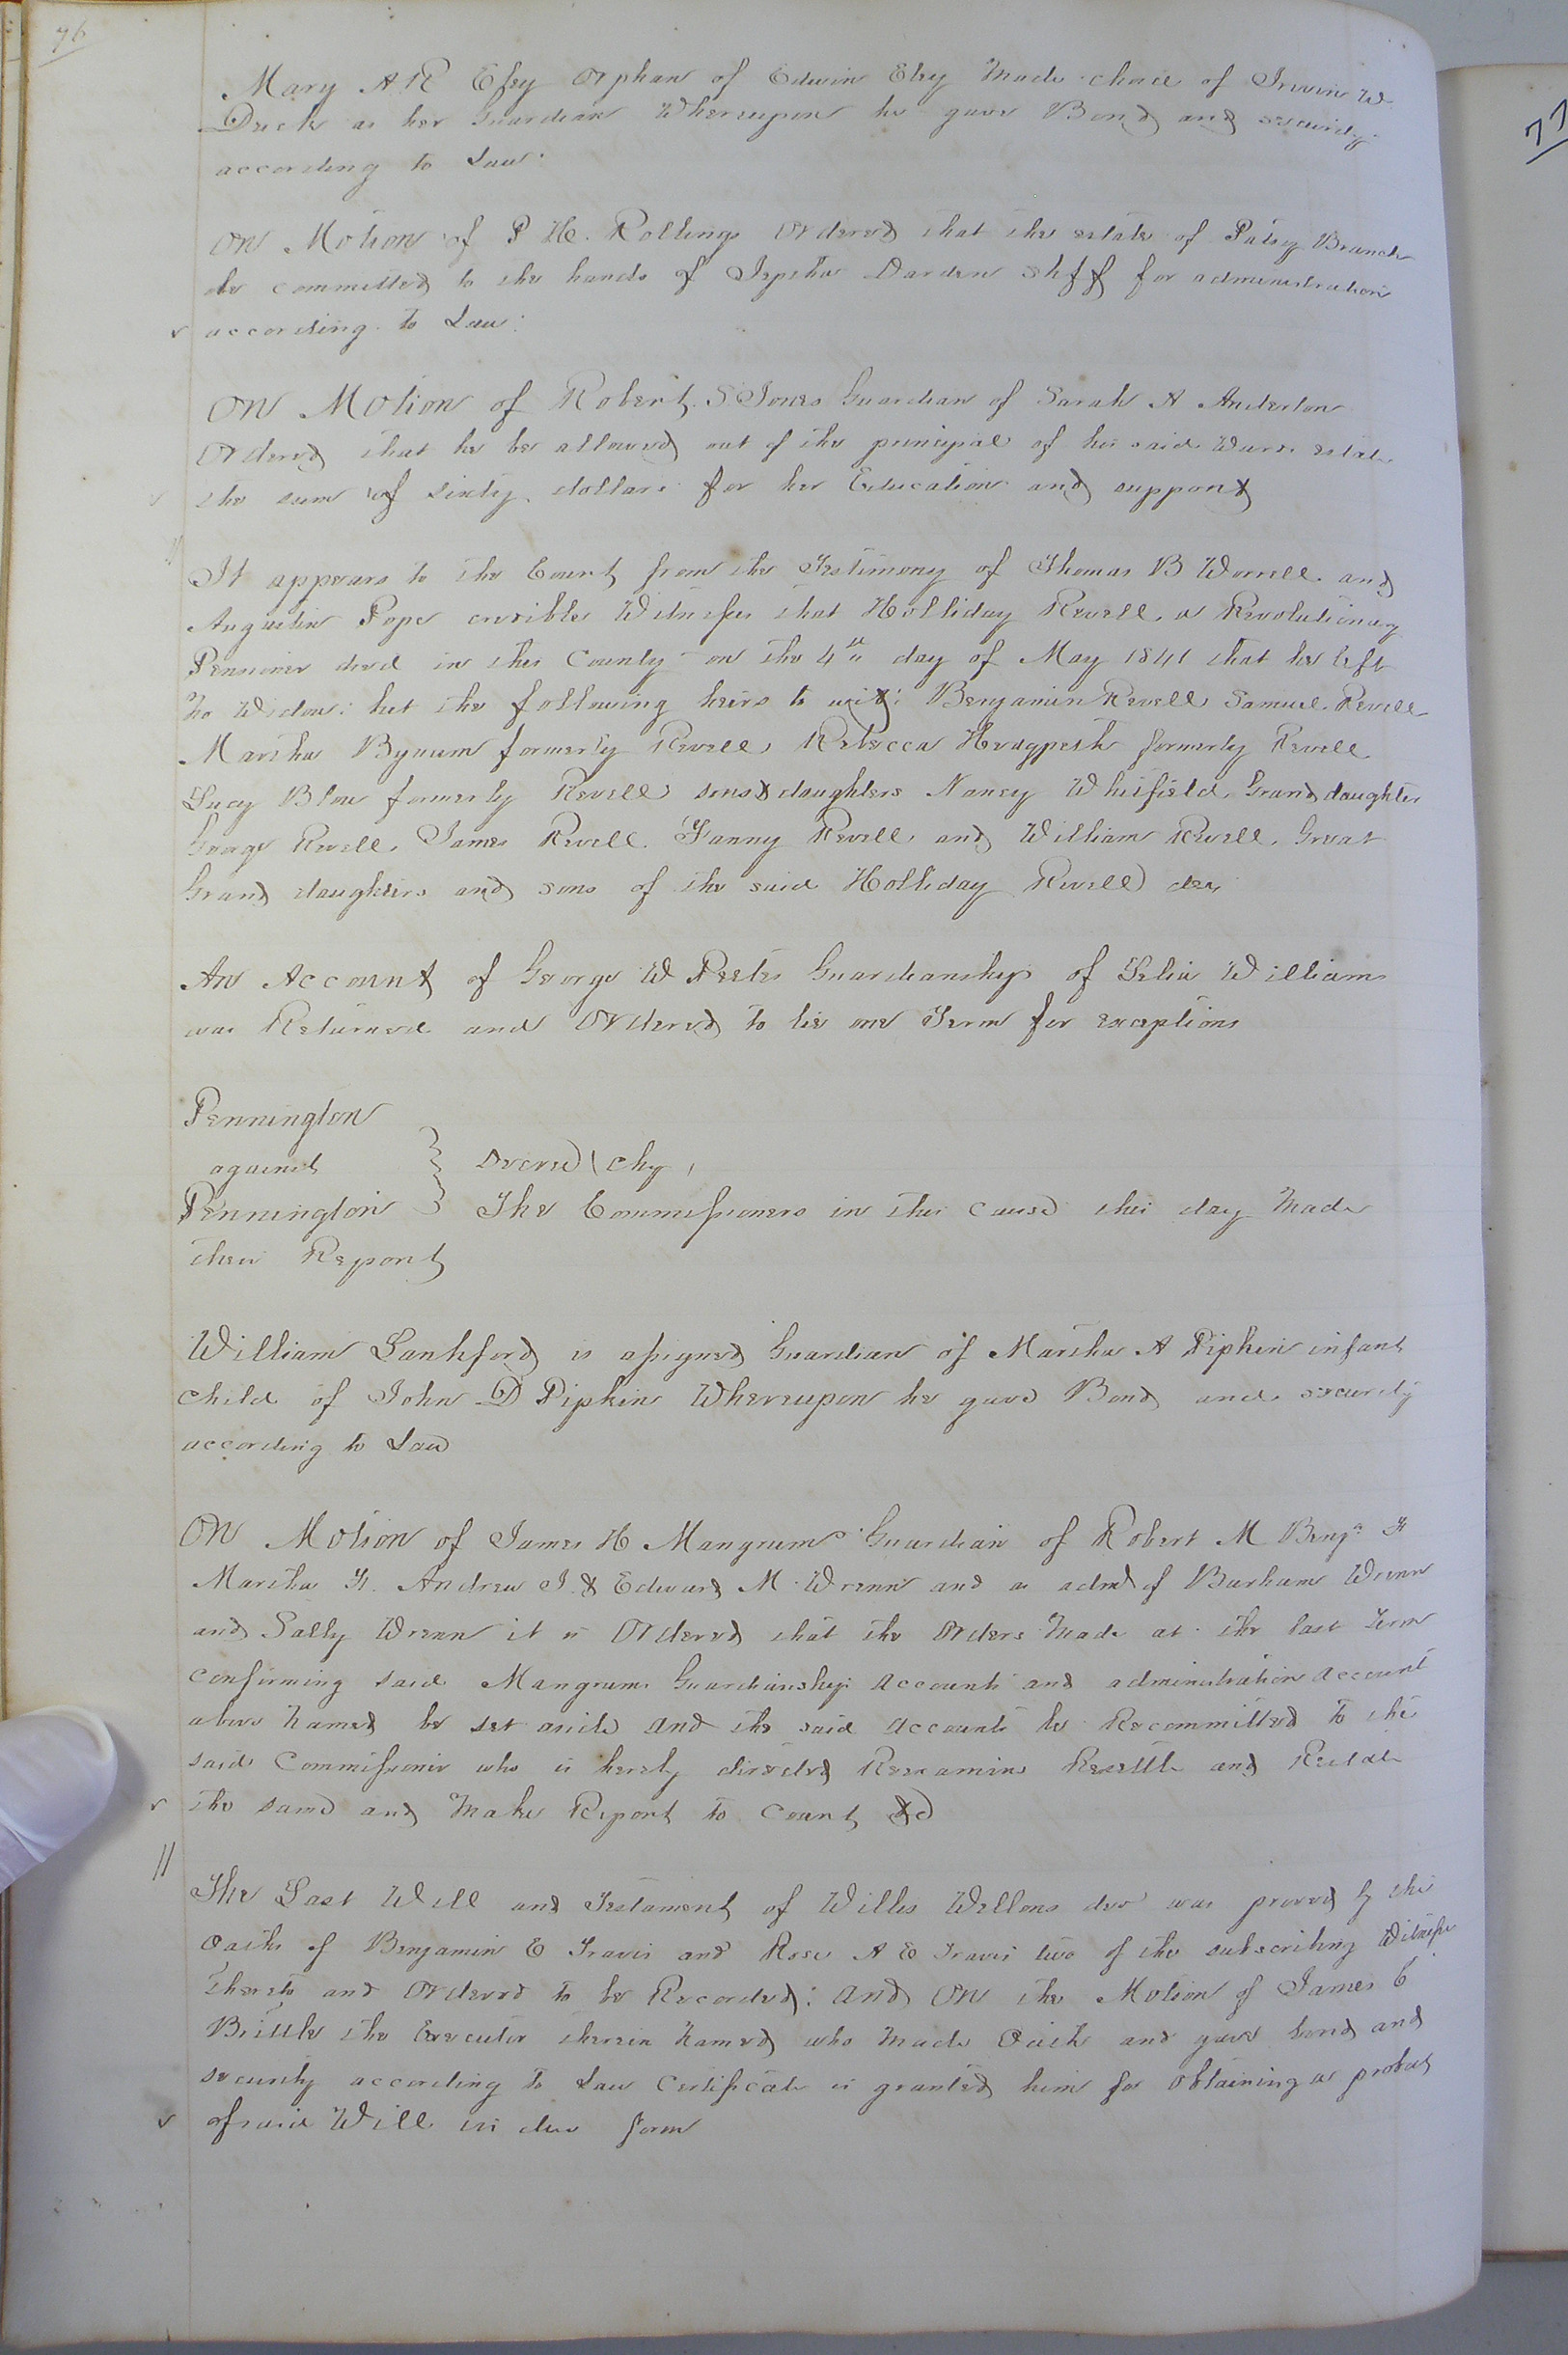 76
Mary A R Eley Orphan of Edwin Eley Made choice of Irvin W
Duck as her Guardian Whereupon he gave Bond and security
according to Law.
On Motion of P H. Rollings Ordered that the estate of Patsy Branch
be committed to the hands of Jeptha Darden Shff for administration
according to Law:
On Motion of Robert S Jones Guardian of Sarah A Anderton
Ordered that he be allowed out of the principal of his said Wards estate
the sum of sixty dollars for her Education and support
It appears to the Court from the Testimony of Thomas B Worrell and
Augustin Pope credible Witnesses that Holliday Revell a Revolutionary
Pensioner died in this County on the 4th day of May 1841 that he left
No Widow: but the following heirs to wit: Benjamin Revell Samuel Revell
Martha Bynum formerly Revell, Rebecca Hedgpeth formerly Revell
Lucy Blow formerly Revell sons & daughters Nancy Whitfield, Grand daughter
George Revell, James Revell. Fanny Revell and William Revell, Great
Grand daughters and sons of the said Holliday Revell dec
An Account of George W Peetes Guardianship of Selia Williams
was Returned and Ordered to lie one Term for exceptions
Pennington
against
Pennington } The Commissioners in this cause this day Made
their Report
William Lankford is assigned Guardian of Martha A Pipkin infant
child of John D Pipkin Whereupon he gave Bond and security
according to Law
On Motion of James H Mangrum Guardian of Robert M Benja F
Martha F. Andrew J. & Edward M Wrenn and as admr of Burham Wrenn
and Sally Wrenn it is Ordered that the Orders Made at the last Term
confirming said Mangrums Guardianship Accounts and administration Account
above Named be set aside and the said Accounts be Recommitted to the
said Commissioner who is hereby directed Reexamine Resettle and Restate
the same and Make Report to Court &c
The Last Will and Testament of Willis Wellons dec was proved by the
Oaths of Benjamin E Travis and Rose A E Travis two of the subscribing Witnesses
thereto and Ordered to be Recorded: And On the Motion of James C
Brittle the Executor therein Named who Made Oath and gave bond and
security according to Law Certificate is granted him for Obtaining a probat
of said Will in due form
77